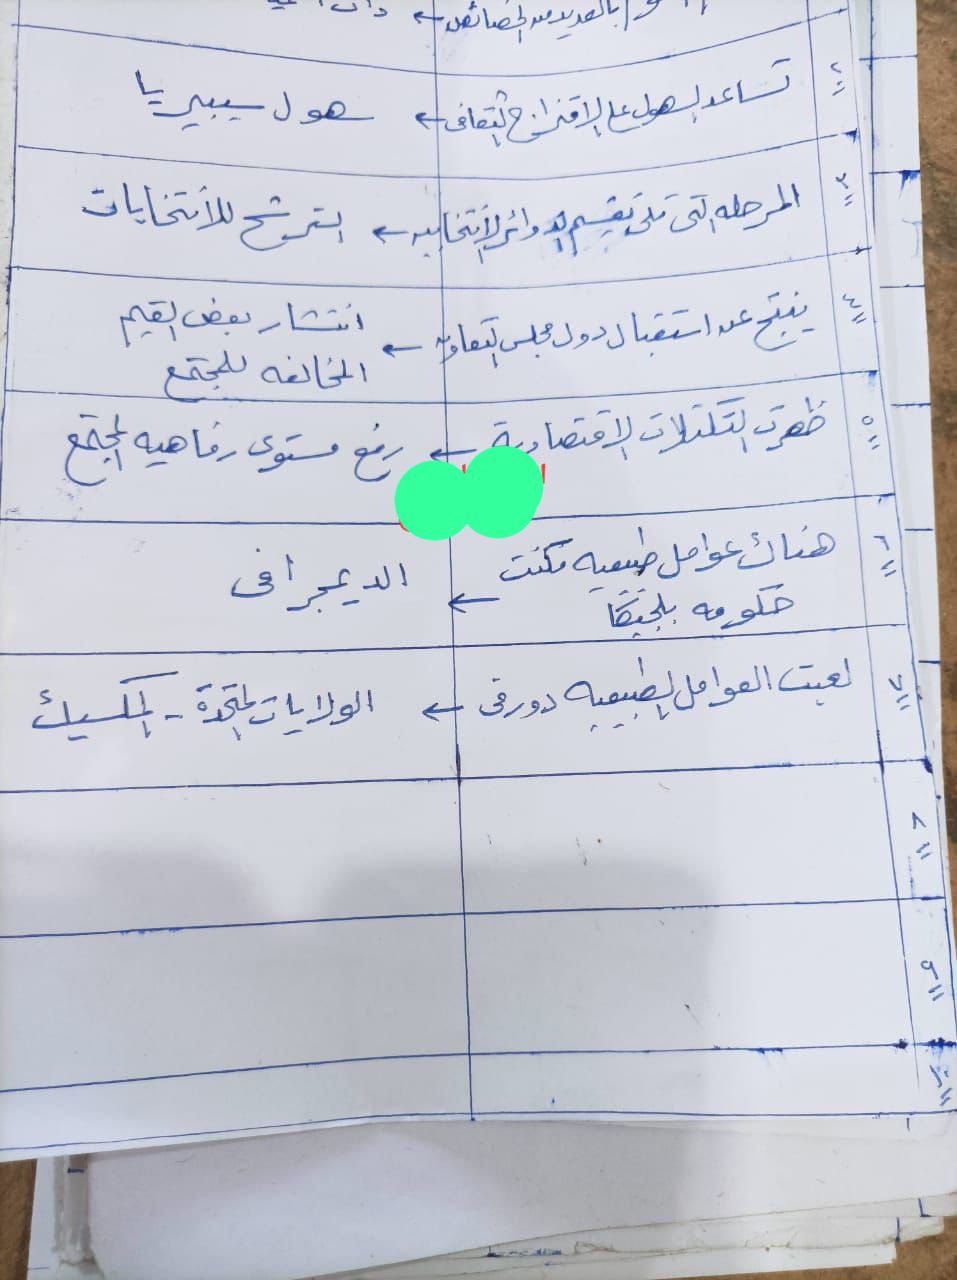 بالعديد من الخصائص ←
٢ تساعد السهول على الاقتزاج الثقافى ← سهول سيبيريا
٣ المرحله التى تلى تقسيم الدوائر الأنتخابيه ← الترشح للأنتخابات
٤ ينتج عن استقبال دول مجلس التعاون ← انتشار بعض القيم
المخالفه للمجتمع
٥ ظهرت التكتلات الاقتصادية ← رفع مستوى رفاهيه المجتمع
٦ هناك عوامل طبيعيه مكنت ← الديمجرافى
حكومه بلجيكا
٧ لعبت العوامل الطبيعيه دور فى ← الولايات المتحدة - المكسيك
٨
٩
١٠